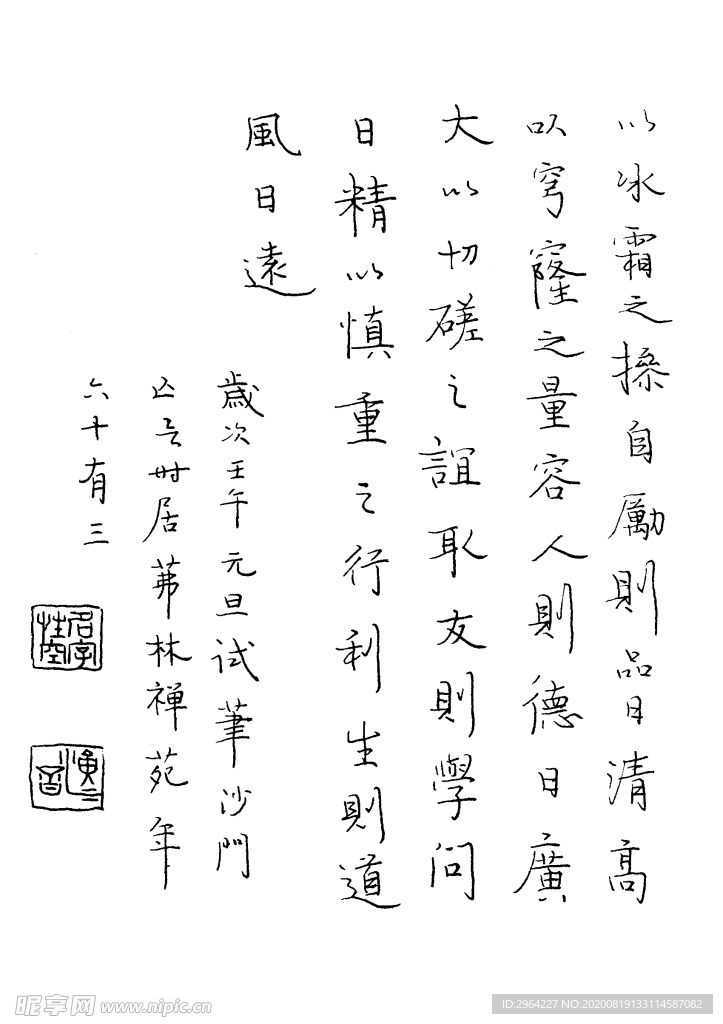 以冰霜之操自勵則品日清高
以穹窿之量容人則德日廣
大以切磋之誼取友則學問
日精以慎重之行利生則道
風日遠
歲次壬午元旦試筆沙門
亡言時居茀林禅苑年
六十有三
名字性空
演音
昵享网 www.nipic.cn
ID:2964227 NO:20200819133114587082